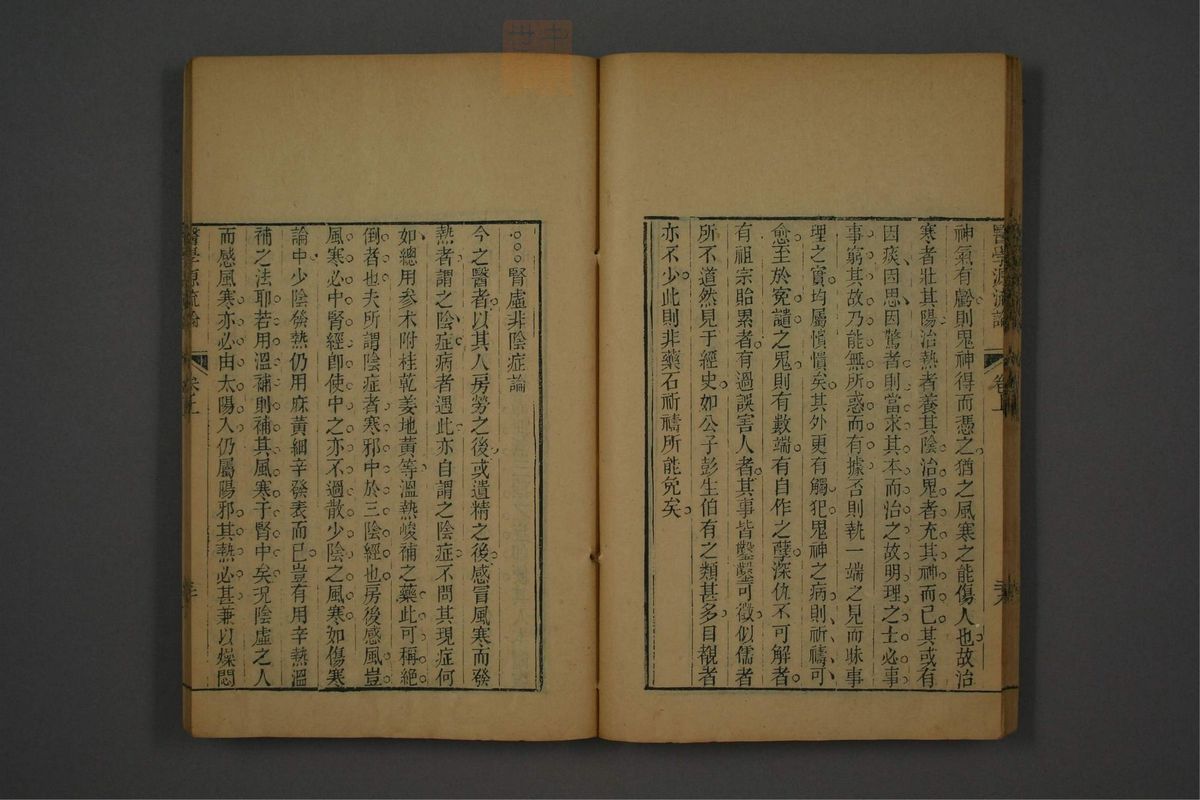 神氣有虧則鬼神得而憑之猶之風寒之能傷人也故治
寒者壯其陽治熱者養其陰治鬼者充其神而已其或有
因痰因思因驚者則當求其本而治之故明理之士必事
事窮其故乃能無所惑而有據否則執一端之見而昧事
理之實均屬憒憒矣其外更有觸犯鬼神之病則祈禱可
愈至於冤譴之鬼則有數端有自作之孽深仇不可解者
有祖宗貽累者有過誤害人者其事皆鑿鑿可徵似儒者
所不道然見于經史如公子彭生伯有之類甚多目覩者
亦不少此則非藥石祈禱所能免矣
醫學源流論
卷上
腎虛非陰症論
今之醫者以其人房勞之後或遺精之後感冒風寒而發
熱者謂之陰症病者遇此亦自謂之陰症不問其現症何
如總用參术附桂乾姜地黃等溫熱峻補之藥此可稱絕
倒者也夫所謂陰症者寒邪中於三陰經也房後感風豈
風寒必中腎經卽使中之亦不過散少陰之風寒如傷寒
論中少陰發熱仍用麻黃細辛發表而已豈有用辛熱溫
補之法耶若用溫補則補其風寒于腎中矣況陰虛之人
而感風寒亦必由太陽入仍屬陽邪其熱必甚兼以燥悶
醫學源流論